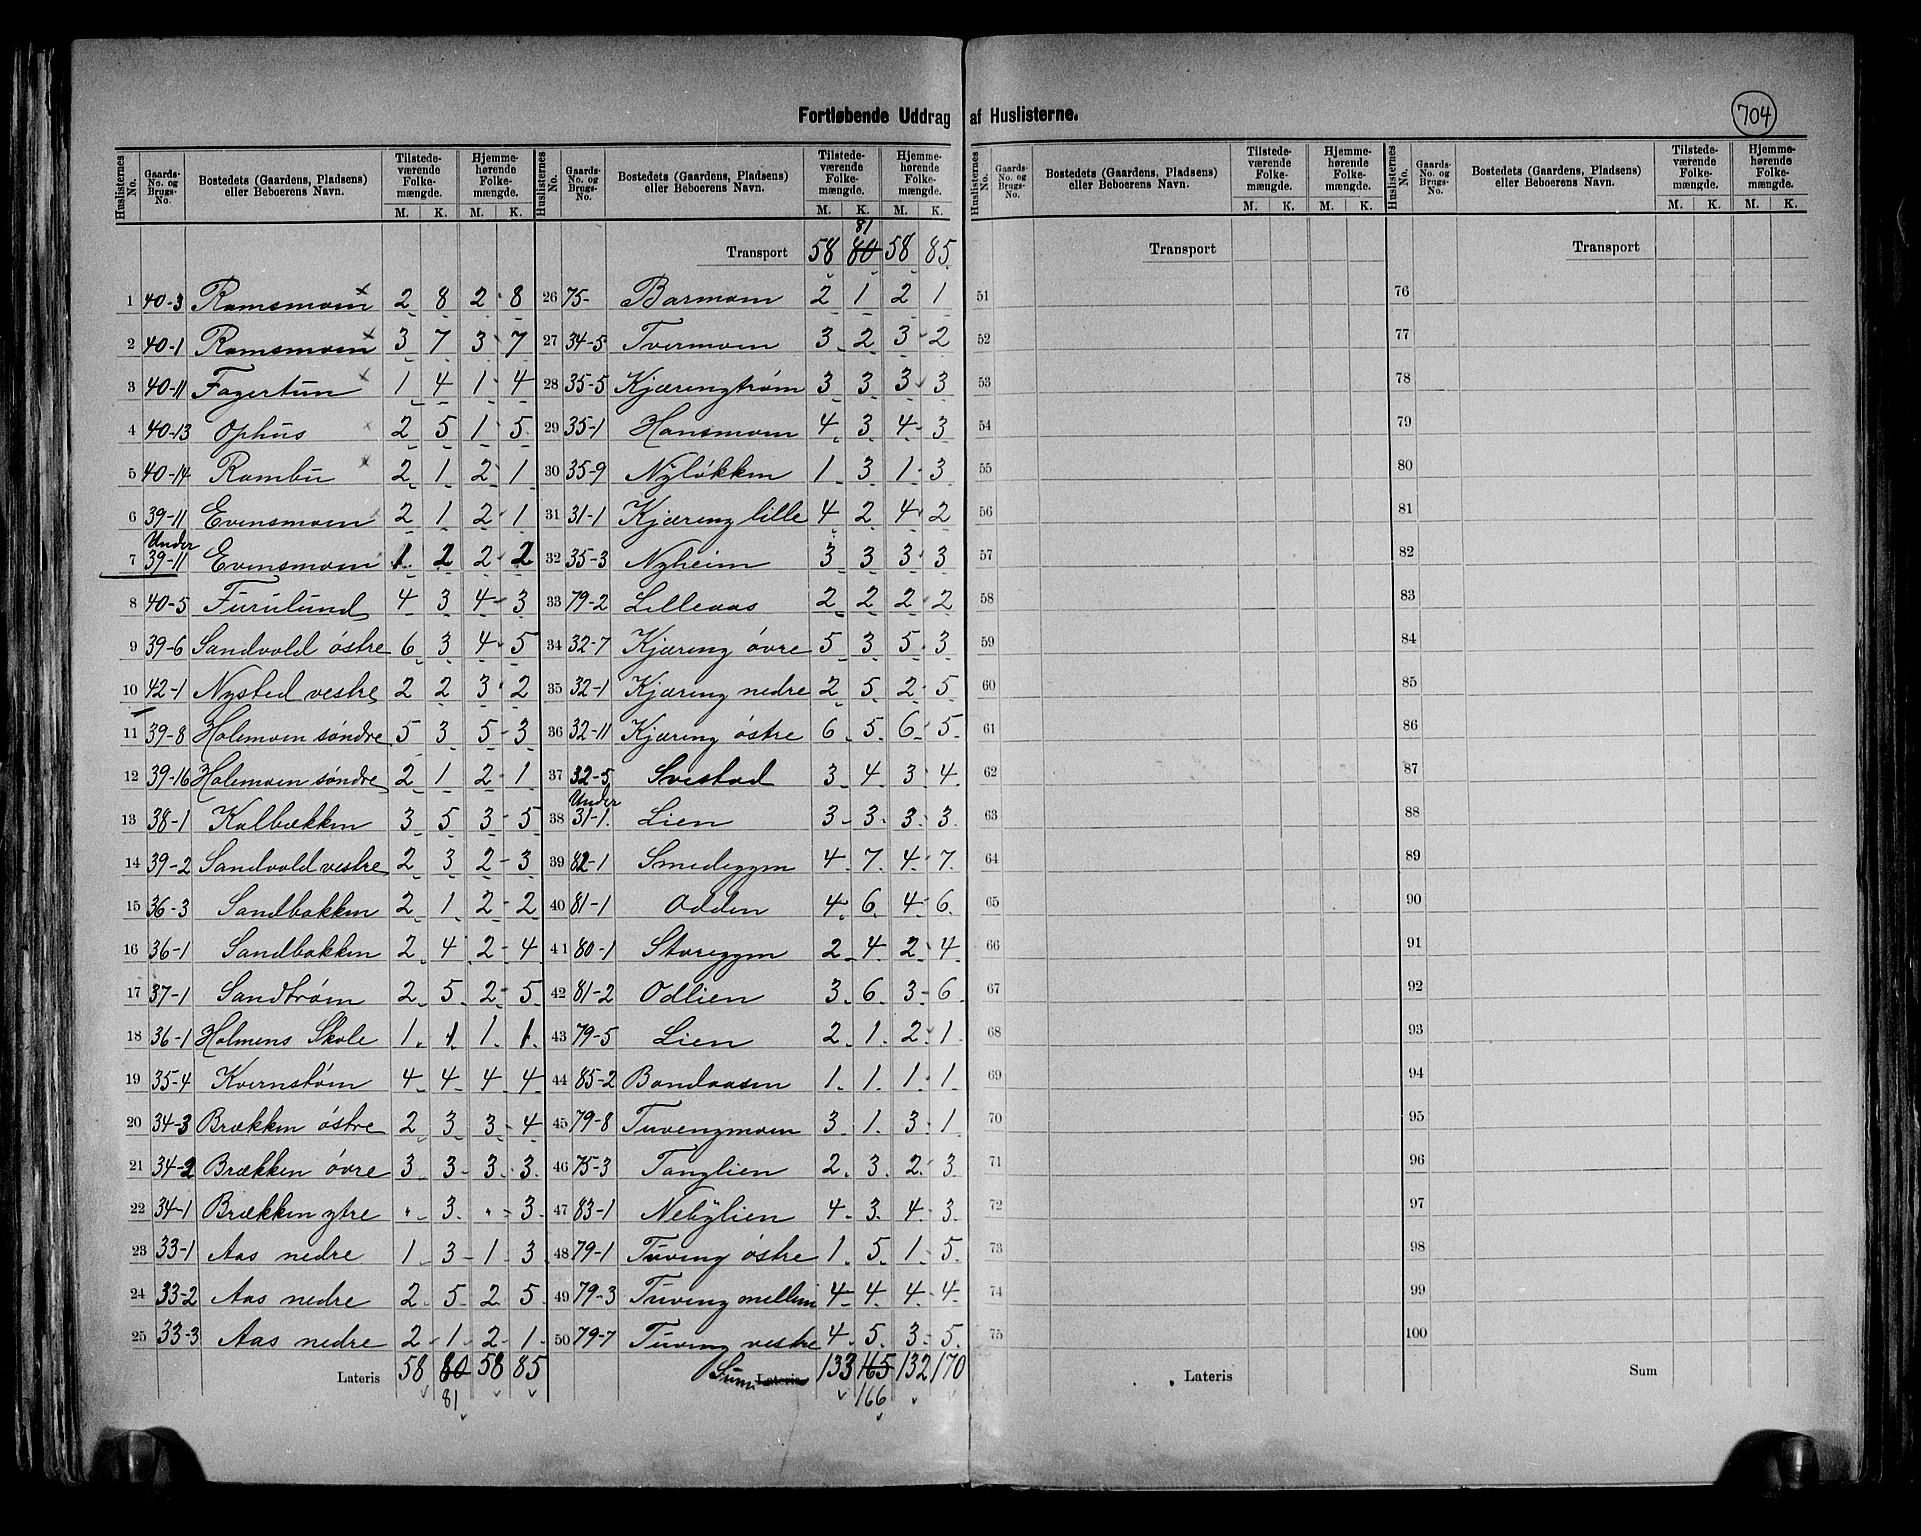 Fortløbende Uddrag af Huslisterne.
704
Huslisternes No. | Gaards-No. og Brugs-No. | Bostedets (Gaardens, Pladsens) eller Beboerens Navn. | Tilstedeværende Folkemængde. M. K. | Hjemmehørende Folkemængde. M. K.
1 40-3 Ramsmoen 2 8 2 8
2 40-1 Ramsmoen 3 7 3 7
3 40-11 Fagertun 1 4 1 4
4 40-13 Ophus 2 5 1 5
5 40-14 Rambu 2 1 2 1
6 39-11 Evensmoen 2 1 2 1
7 Under 39-11 Evensmoen 1 2 2 2
8 40-5 Furulund 4 3 4 3
9 39-6 Sandvold østre 6 3 4 5
10 42-1 Nysted vestre 2 2 3 2
11 39-8 Holemoen søndre 5 3 5 3
12 39-16 Holemoen søndre 2 1 2 1
13 38-1 Kalbækken 3 5 3 5
14 39-2 Sandvold vestre 2 3 2 3
15 36-3 Sandbakken 2 1 2 2
16 36-1 Sandbakken 2 4 2 4
17 37-1 Sandtrøm 2 5 2 5
18 36-1 Holmens Skole 1 1 1 1
19 35-4 Kvernstøm 4 4 4 4
20 34-3 Brækken østre 2 3 3 4
21 34-2 Brækken øvre 3 3 3 3
22 34-1 Brækken ytre " 3 " 3
23 33-1 Aas nedre 1 3 1 3
24 33-2 Aas nedre 2 5 2 5
25 33-3 Aas nedre 2 1 2 1
Lateris 58 80 58 85
81
Huslisternes No. | Gaards-No. og Brugs-No. | Bostedets (Gaardens, Pladsens) eller Beboerens Navn. | Tilstedeværende Folkemængde. M. K. | Hjemmehørende Folkemængde. M. K.
81
Transport 58 80 58 85
26 75- Barmoen 2 1 2 1
27 34-5 Tvermoen 3 2 3 2
28 35-5 Kjæringtrøm 3 3 3 3
29 35-1 Hansmoen 4 3 4 3
30 35-9 Nyløkken 1 3 1 3
31 31-1 Kjæring lille 4 2 4 2
32 35-3 Nyheim 3 3 3 3
33 79-2 Lilleaas 2 2 2 2
34 32-7 Kjæring øvre 5 3 5 3
35 32-1 Kjæring nedre 2 5 2 5
36 32-11 Kjæring østre 6 5 6 5
37 32-5 Svestad 3 4 3 4
38 Under 31-1. Lien 3 3 3 3
39 82-1 Smedeggen 4 7 4 7
40 81-1 Odden 4 6 4 6
41 80-1 Storeggen 2 4 2 4
42 81-2 Odlien 3 6 3 6
43 79-5 Lien 2 1 2 1
44 85-2 Bondaasen 1 1 1 1
45 79-8 Tuvengmoen 3 1 3 1
46 75-3 Tanglien 2 3 2 3
47 83-1 Nebylien 4 3 4 3
48 79-1 Tuving østre 1 5 1 5
49 79-3 Tuving mellem 4 4 4 4
50 79-7 Tuving vestre 4 5 3 5
Sum Lateris 133 165 132 170
166
Huslisternes No. | Gaards-No. og Brugs-No. | Bostedets (Gaardens, Pladsens) eller Beboerens Navn. | Tilstedeværende Folkemængde. M. K. | Hjemmehørende Folkemængde. M. K.
Transport
51
52
53
54
55
56
57
58
59
60
61
62
63
64
65
66
67
68
69
70
71
72
73
74
75
Lateris
Huslisternes No. | Gaards-No. og Brugs-No. | Bostedets (Gaardens, Pladsens) eller Beboerens Navn. | Tilstedeværende Folkemængde. M. K. | Hjemmehørende Folkemængde. M. K.
Transport
76
77
78
79
80
81
82
83
84
85
86
87
88
89
90
91
92
93
94
95
96
97
98
99
100
Sum